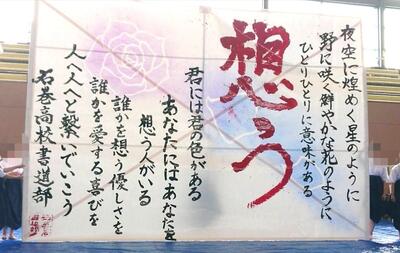 夜空に煌めく星のように
野に咲く鮮やかな花のように
ひとりひとりに意味がある
想う
君には君の色がある
あなたにはあなたを
想う人がいる
誰かを想う優しさを
誰かを愛する喜びを
人へ人へと繋いでいこう
石巻高校書道部